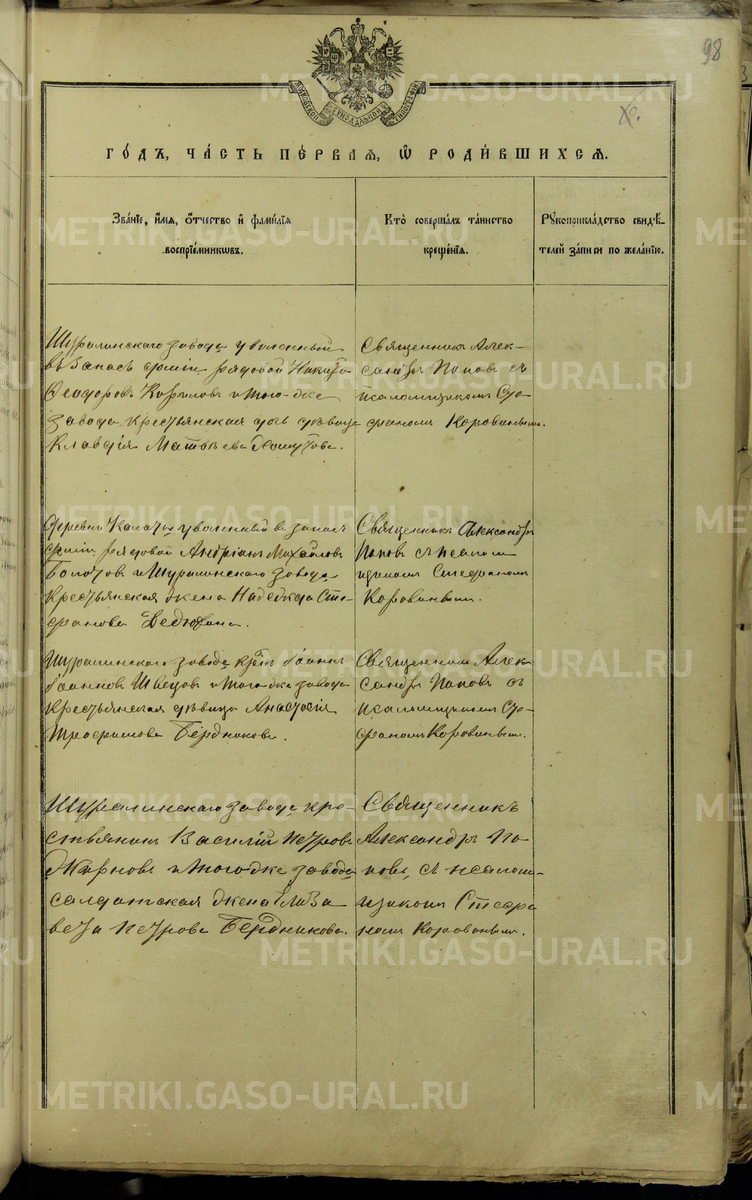 98
МОСКОВСКОЙ СѴНОДАЛЬНОЙ ТИПОГРАФІИ
ГО́ДЪ, ЧА́СТЬ ПЕ́РВАЯ, Ѽ РОДИ́ВШИХСЯ.
ЗВА́НІЕ, И́МЯ, О́ТЧЕСТВО И҆ ФАМИ́ЛІЯ ВОСПРІЕ́МНИКОВЪ.
КТО̀ СОВЕРША́ЛЪ ТА́ИНСТВО КРЕЩЕ́НІЯ.
РꙊКОПРИКЛА́ДСТВО СВИДѢ́ТЕЛЕЙ ЗА́ПИСИ ПО ЖЕЛА́НІЮ.
Шуралинскаго завода уволенный
въ запасъ арміи рядовой Никита
Ѳеодоровъ и того-же
завода крестьянская дочь девица
Клавдія Матвѣева
Священникъ Алек-
сандръ Поповъ съ
псаломщикомъ Сте-
фаномъ Коровинымъ.
Деревни уволенный въ запасъ
арміи рядовой Андріанъ Михайловъ
Болотовъ и Шуралинскаго завода
крестьянская жена Надежда Сте-
фанова Ведюкина.
Священникъ Александръ
Поповъ съ псалом
щикомъ Стефаномъ
Коровинымъ.
Шуралинскаго завода крест. Іоаннъ
Іоанновъ Швецовъ и того-же завода
крестьянская дѣвица Анастасія
Трофимова Бердникова.
Священникъ Алек
сандръ Поповъ съ
псаломщикомъ Сте-
фаномъ Коровинымъ.
Шуралинскаго завода кре
стьянинъ Василій Петровъ
Жирновъ и того-же завода
салдатская жена Елиза
вета Петрова Бердникова.
Священникъ
Александръ По
повъ, съ псалом-
щикомъ Стефа
номъ Коровинымъ.
METRIKI.GASO-URAL.RU